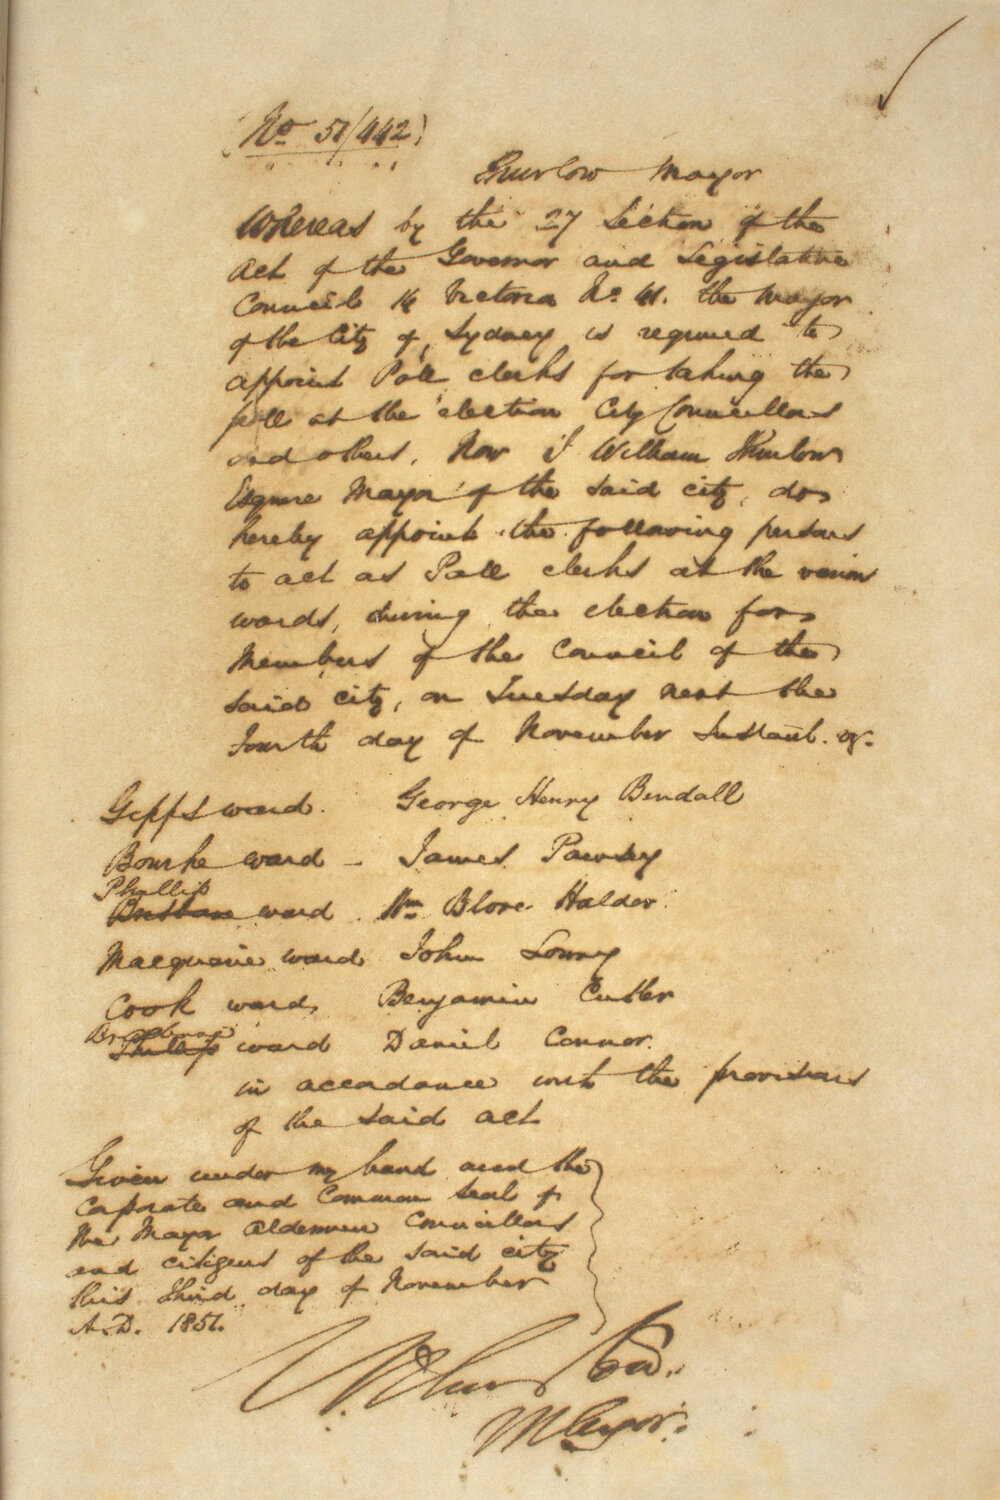 (No 51/442)
Thurlow Mayor
Whereas by the 27 Section of the
Act of the Governor and Legislative
Council 14 Victoria No 41. the Mayor
of the City of Sydney is required to
appoint Poll clerks for taking the
poll at the election City Councillors
and others, Now I William Thurlow
Esquire Mayor of the said city, do
hereby appoint the following persons
to act as Poll clerks at the various
wards, during the election for
Members of the Council of the
said city, on Tuesday next the
fourth day of November Instant.
Gipps ward. George Henry Bendall
Bourke ward - James Pawsey
Phillip
Brisbane ward Wm Blore Halder.
Macquarie ward John Lowry
Cook ward, Benjamin Cutler
Brisbane
Phillip ward Daniel Connor.
in accordance with the provisions
of the said act
Given under my hand and the
Corporate and Common Seal of
the Mayor Aldermen Councillors
and citizens of the said city
this third day of November
A.D. 1851.
W Thurlow
Mayor.